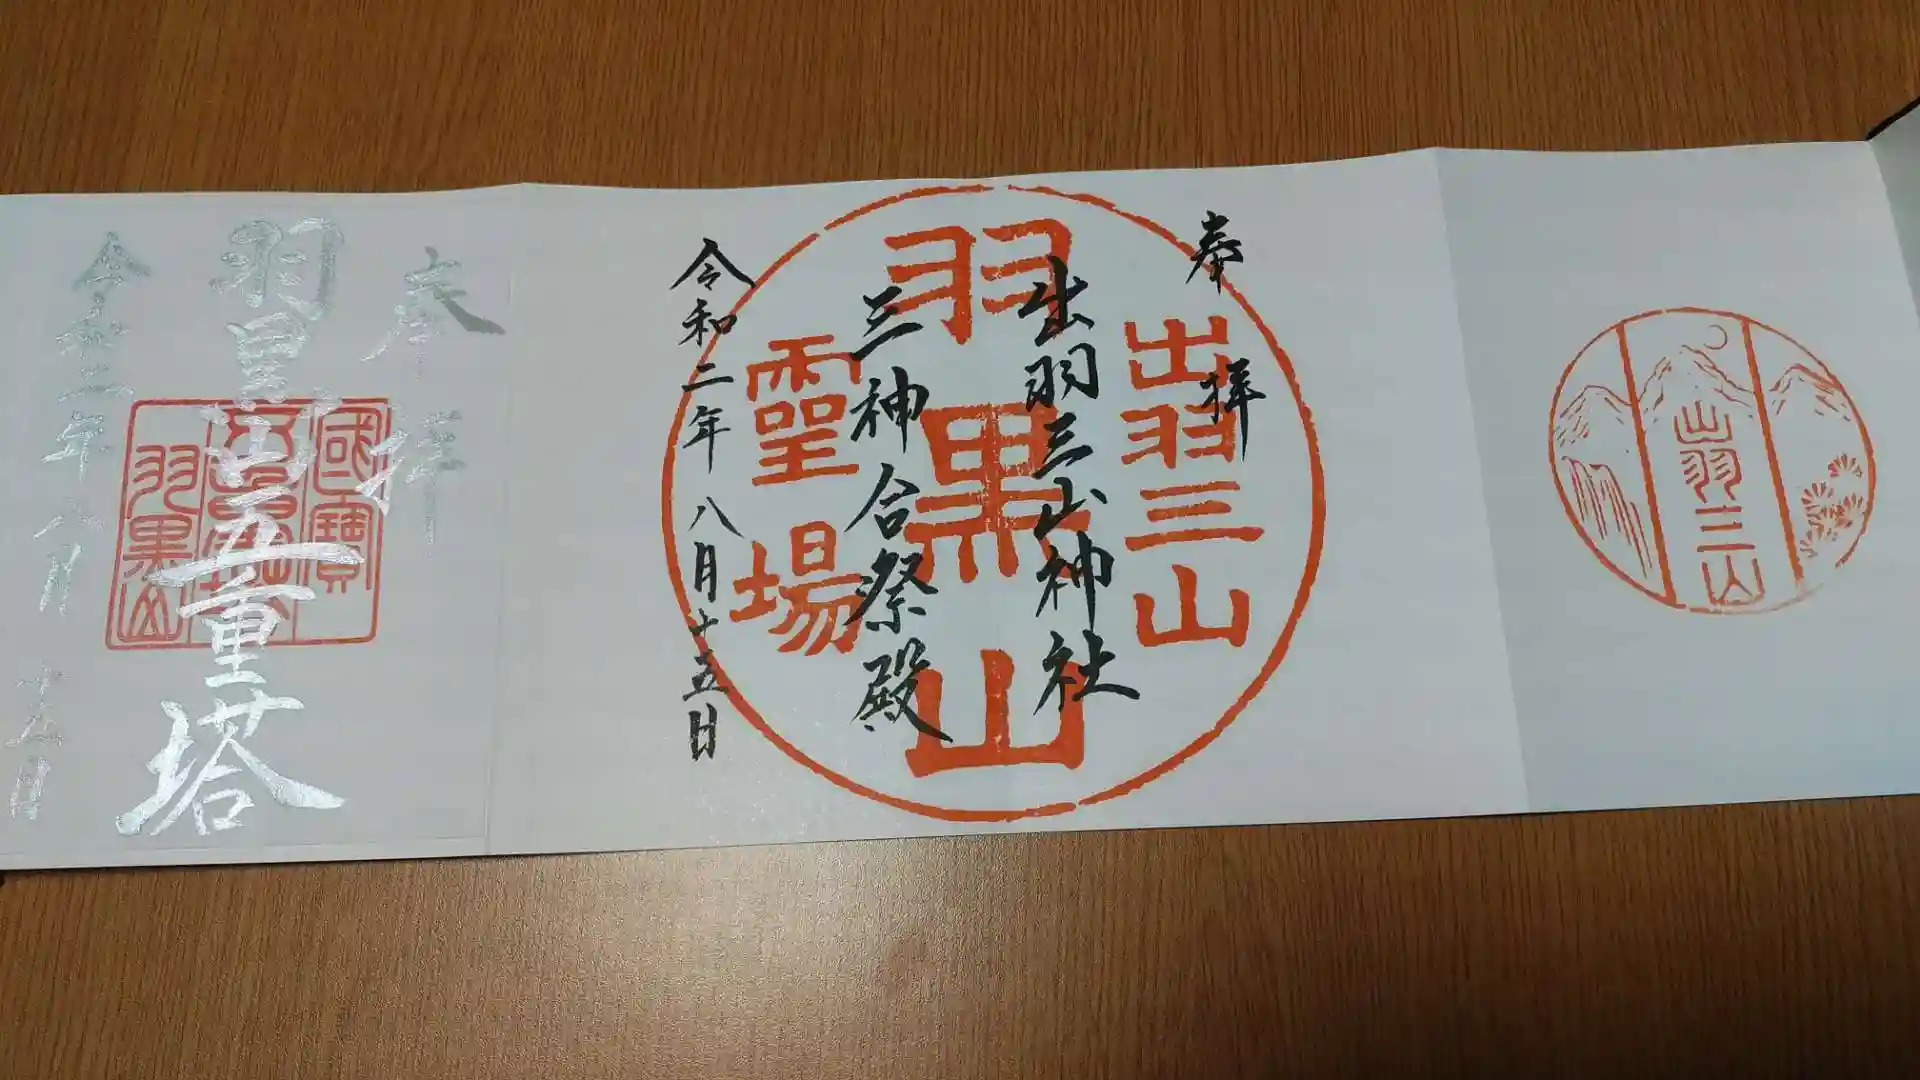 出羽三山
奉拝
出羽三山
出羽三山神社
羽黒山
三神合祭殿
靈場
令和二年八月十五日
奉拝
國寶
羽黒山五重塔
羽黒山
令和二年八月十五日